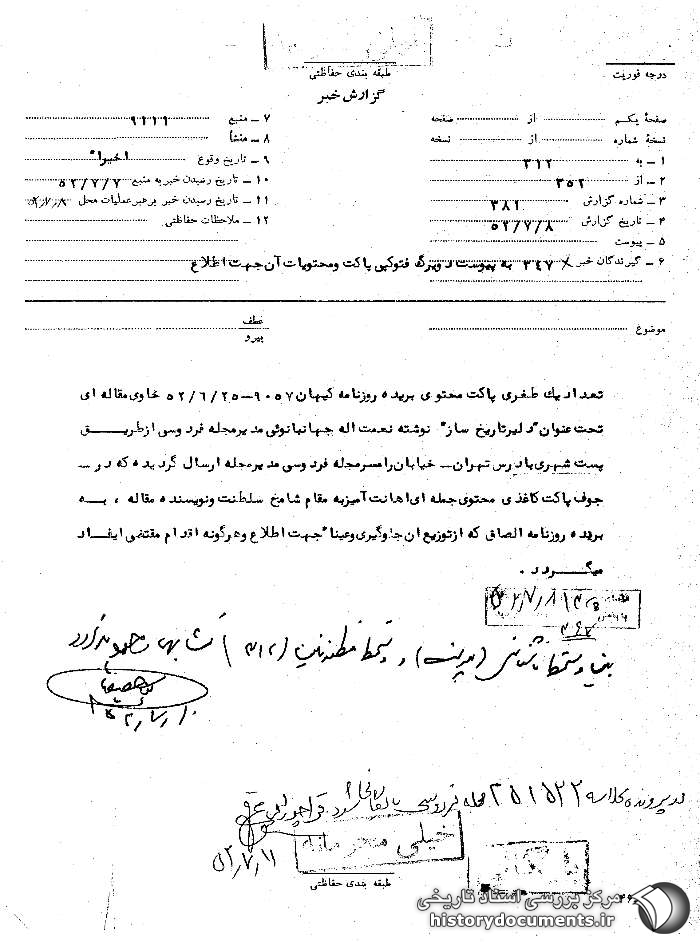 طبقه بندی حفاظتی
درجه فوریت
گزارش خبر
صفحهٔ یکم از صفحه
نسخهٔ شماره از نسخه
۱ ـ به ۳۱۲
۲ ـ از ۳۵۲
۳ ـ شماره گزارش ۳۸۱
۴ ـ تاریخ گزارش ۵۲/۷/۸
۵ ـ پیوست
۶ ـ گیرندگان خبر ۳۴۷ به پیوست دو برگ فتوکپی پاکت و محتویات آن جهت اطلاع
۷ ـ منبع ۹۱۱۱
۸ ـ منشأ
۹ ـ تاریخ وقوع اخیرا"
۱۰ ـ تاریخ رسیدن خبر به منبع ۵۲/۷/۷
۱۱ ـ تاریخ رسیدن خبر برهبر عملیات محل ۵۲/۷/۸
۱۲ ـ ملاحظات حفاظتی
موضوع
عطف
پیرو
تعداد یك طغری پاکت محتوی بریده روزنامه کیهان ۹۰۵۷-۵۲/۶/۲۵ حاوی مقاله ای
تحت عنوان "دلیرتاریخ ساز" نوشته نعمت اله جهانبانوئی مدیر مجله فردوسی از طریق
پست شهری بادرس تهران ـ خیابان رامسر مجله فردوسی مدیر مجله ارسال گردیده که در
جوف پاکت کاغذی محتوی جمله ای اهانت آمیز به مقام شامخ سلطنت و نویسنده مقاله ، به
بریده روزنامه الصاق که از توزیع ان جلوگیری وعینا" جهت اطلاع وهرگونه اقدام مقتضی ایفاد
میگردد .
۵۲/۷/۱۰
در پرونده کلاسه ۳۵۱۵۲۲ مجله فردوسی بایگانی شود
۵۲/۷/۱۱
خیلی محرمانه
طبقه بندی حفاظتی
مرکز بررسی اسناد تاریخی
historydocuments.ir